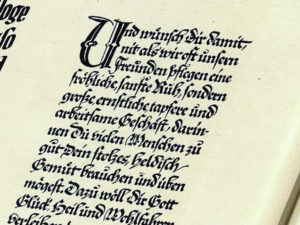 loge
so
d
Und wünsch dir damit
nit als wir oft unsern
Freunden pflegen eine
fröhliche, sanfte Rüh, sondern
große ernstliche tapfere und
arbeitsame Geschäft, darin-
nen Du vielen Menschen zu
gut Dein stolzes, heldisch
Gemüt brauchen und üben
mögest. Dazu wöll dir Gott
Glück, Heil und Wohlfahren
verleihen